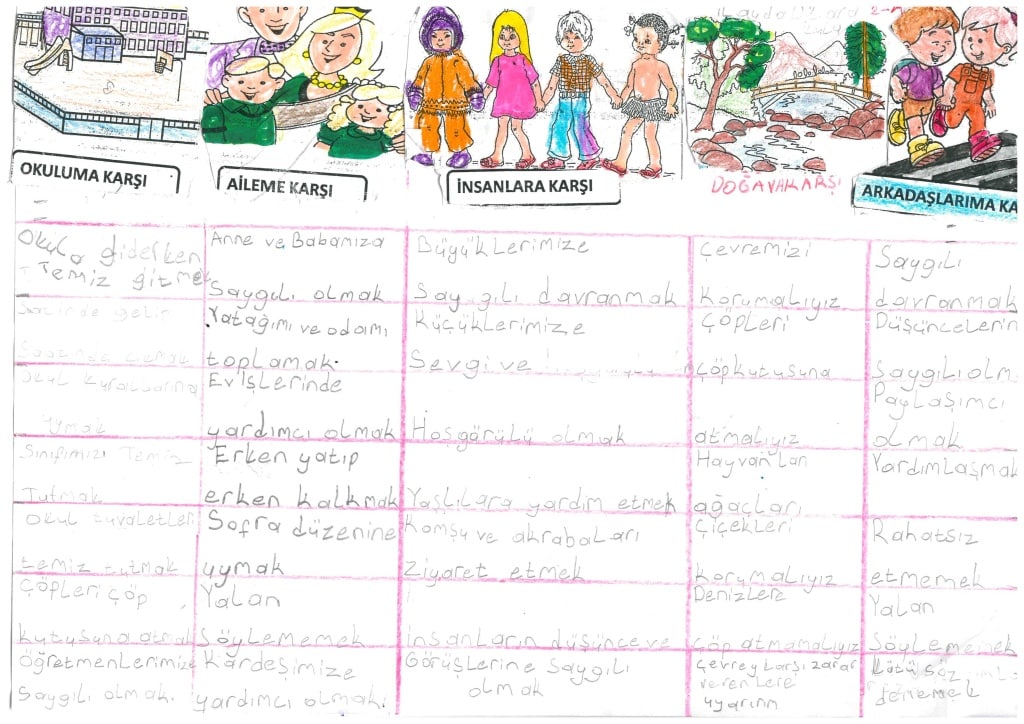 OKULUMA KARŞI
Okula giderken
Temiz gitmek
gelip
Okul Kurallarına
uymak
Sınıfımızı Temiz
Tutmak
Okul tuvaletleri
temiz tutmak
Çöpleri çöp
kutusuna atmak
öğretmenlerimize
saygılı olmak.
AİLEME KARŞI
Anne ve Babamıza
Saygılı olmak
Yatağımı ve odamı
toplamak.
Ev işlerinde
yardımcı olmak
Erken yatıp
erken kalkmak
Sofra düzenine
uymak
Yalan
Söylememek
Kardeşimize
yardımcı olmak.
İNSANLARA KARŞI
Büyüklerimize
Saygılı davranmak
Küçüklerimize
Sevgi ve
Hoşgörülü olmak
Yaşlılara yardım etmek
Komşu ve akrabaları
Ziyaret etmek
İnsanların düşünce ve
Görüşlerine saygılı
olmak
DOĞAYA KARŞI
Çevremizi
Korumalıyız
Çöpleri
çöp kutusuna
atmalıyız
Hayvanları
ağaçları
Çiçekleri
korumalıyız
Denizlere
çöp atmamalıyız
Çevreye karşı zarar
verenlere
uyarını
ARKADAŞLARIMA KA
Saygılı
davranmak
Düşüncelerin
saygılı olm
Paylaşımcı
olmak
Yardımlaşmak
Rahatsız
etmemek
Yalan
Söylememek
Kötü söz